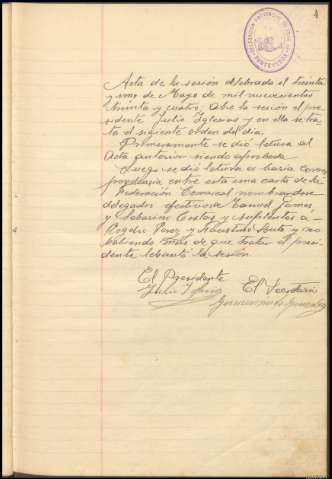 4
Acta de la sesión celebrada el treinta
y uno de Mayo de mil novecientos
treinta y cuatro; Abre la sesión el pre-
sidente Julio Iglesias y en ella se tra-
ta el siguiente orden del dia.
Primeramente se dió letura al
Acta anterior siendo aprobada
Luego se dió letura a baria corres-
pondencia entre esta una carta de la
Federación Comarcal nombrando
delegados efectivos a Manuel Lamas
y Seberino Costas y suplentes a
Rogelio Perez y Faustino Souto y no
habiendo más de que tratar el presi-
dente lebantó la sesión
El Presidente
Julio Iglesias
El Secretario
Gonzalez